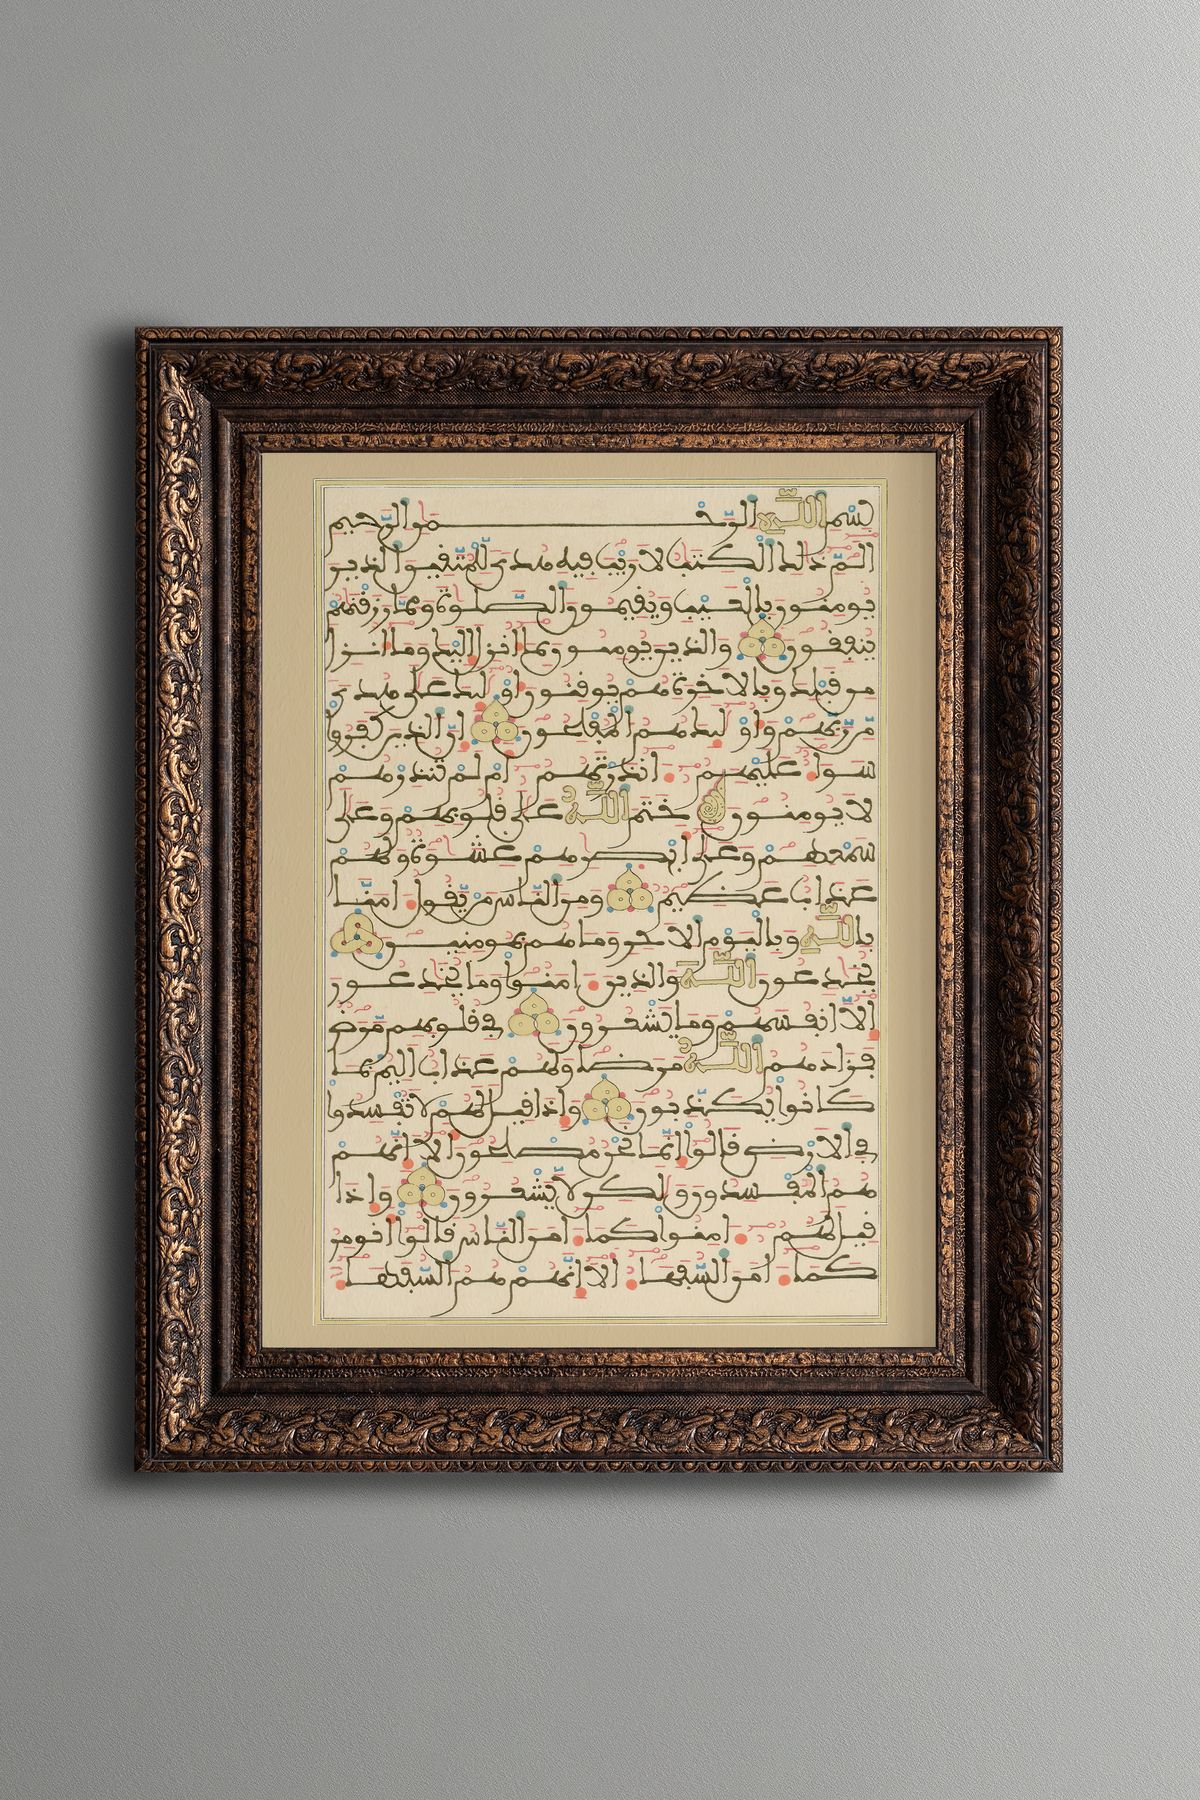 بسم الله الرحمن الرحيم
الم ذلك الكتب لا ريب فيه هدى للمتقين الذين
يومنون بالغيب ويقيمون الصلوة ومما رزقنهم
ينفقون والذين يومنون بما انزل اليك وما انزل
من قبلك وبالاخرة هم يوقنون اولئك على هدى
من ربهم واولئك هم المفلحون ان الذين كفروا
سواء عليهم ءانذرتهم ام لم تنذرهم
لا يومنون ختم الله على قلوبهم وعلى
سمعهم وعلى ابصرهم غشوة ولهم
عذاب عظيم ومن الناس من يقول ءامنا
بالله وباليوم الاخر وما هم بمومنين
يخدعون الله والذين ءامنوا وما يخدعون
الا انفسهم وما يشعرون في قلوبهم مرض
فزادهم الله مرضا ولهم عذاب اليم بما
كانوا يكذبون واذا قيل لهم لا تفسدوا
في الارض قالوا انما نحن مصلحون الا انهم
هم المفسدون ولكن لا يشعرون واذا
قيل لهم ءامنوا كما ءامن الناس قالوا انومن
كما ءامن السفهاء الا انهم هم السفهاء